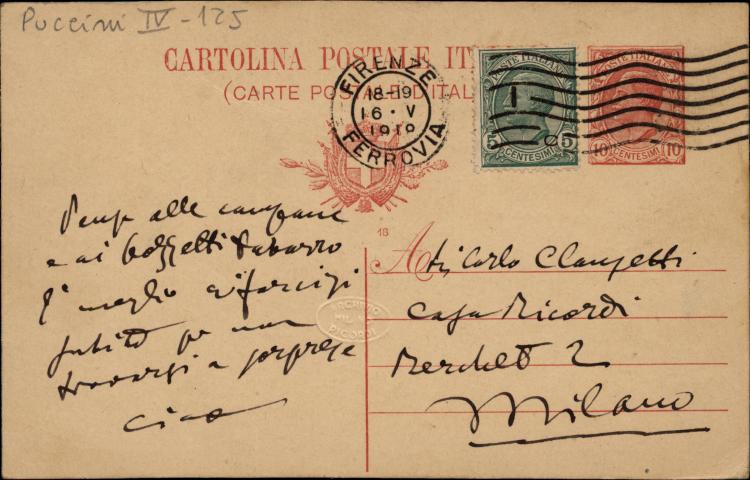 Puccini IV - 125
CARTOLINA POSTALE IT
(CARTE POSTALE D'ITAL
FIRENZE
18-19
16 · V
1918
FERROVIA
POSTE ITALIANE
5 5
CENTESIMI
POSTE ITALIANE
10 10
CENTESIMI
alle campane
e ai bozzetti Tabarro
E' meglio
subito per non
trovarsi a sorprese
ciao
18
ARCHIVIO
RICORDI
A Carlo Clausetti
Casa Ricordi
Merchet 2
Milano